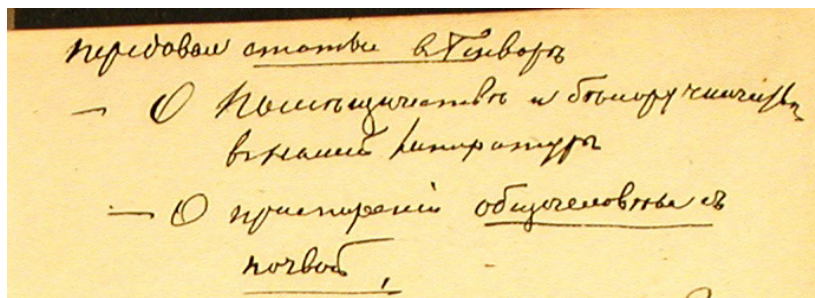 Передовая статья въ Генварѣ
— О помѣщичествѣ и бѣлоручничествѣ
въ нашей литературѣ
— О примиреніи общечеловѣка съ
почвой,